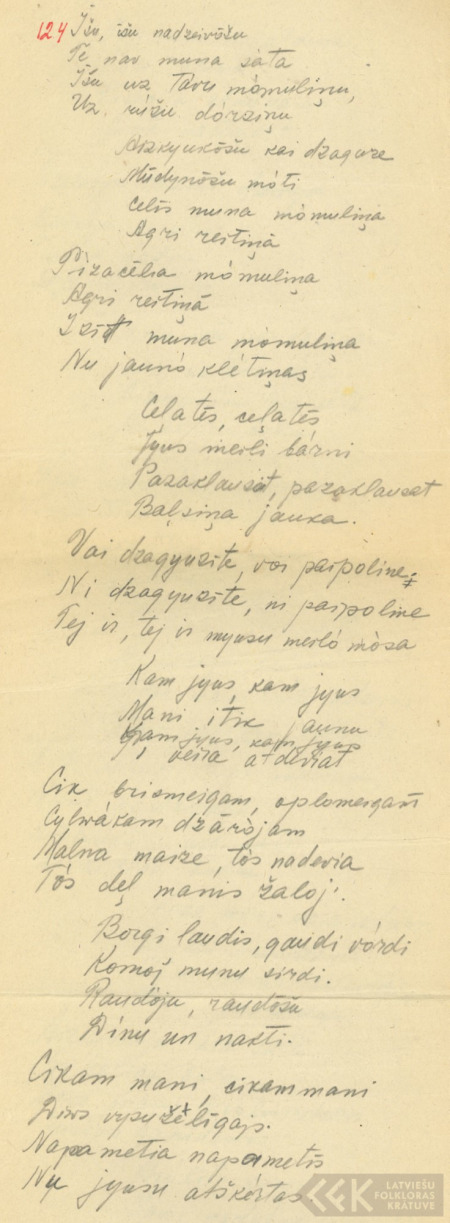 124 Īšu, īšu nadzeivōšu
Te nav muna sāta
Īšu uz tāvu mōmuliņu,
Uz rūžu dōrziņu
Aizkyukōšu kai dzaguze
Mūdynōšu mōti
Celīs muna mōmuliņa
Agri reitiņā
Pīzacēlia mōmuliņa
Agri reitiņā
Izīt muna mōmuliņa
Nu jaunōs klētiņas
Ceļatēs, ceļatēs
Jyus meili bārni
Pazaklausat, pazaklausat
Baļsiņa jauka.
Vai dzagyuzite, voi paipoline
Ni dzagyuzite, ni paipoline
Tej ir, tej ir myusu meiļō mōsa
Kam jyus, kam jyus
Mani itik jaunu
Kam jyus, kam jyus
veira atdevíat
Cik brismeigam, oplomeigam
Cylwākam dzārōjam
Malna maize, tōs nadevia
Tōs deļ manis žaloj.
Borgi laudis, gaudi vōrdi
Komoj munu sirdi.
Raudōju, raudōšu
Dīnu un nakti.
Cikam mani, cikam mani
Diws vysužēlīgajs.
Napametia napametīs
Nu jyusu atškērtas
LATVIEŠU
FOLKLORAS
KRĀTUVE